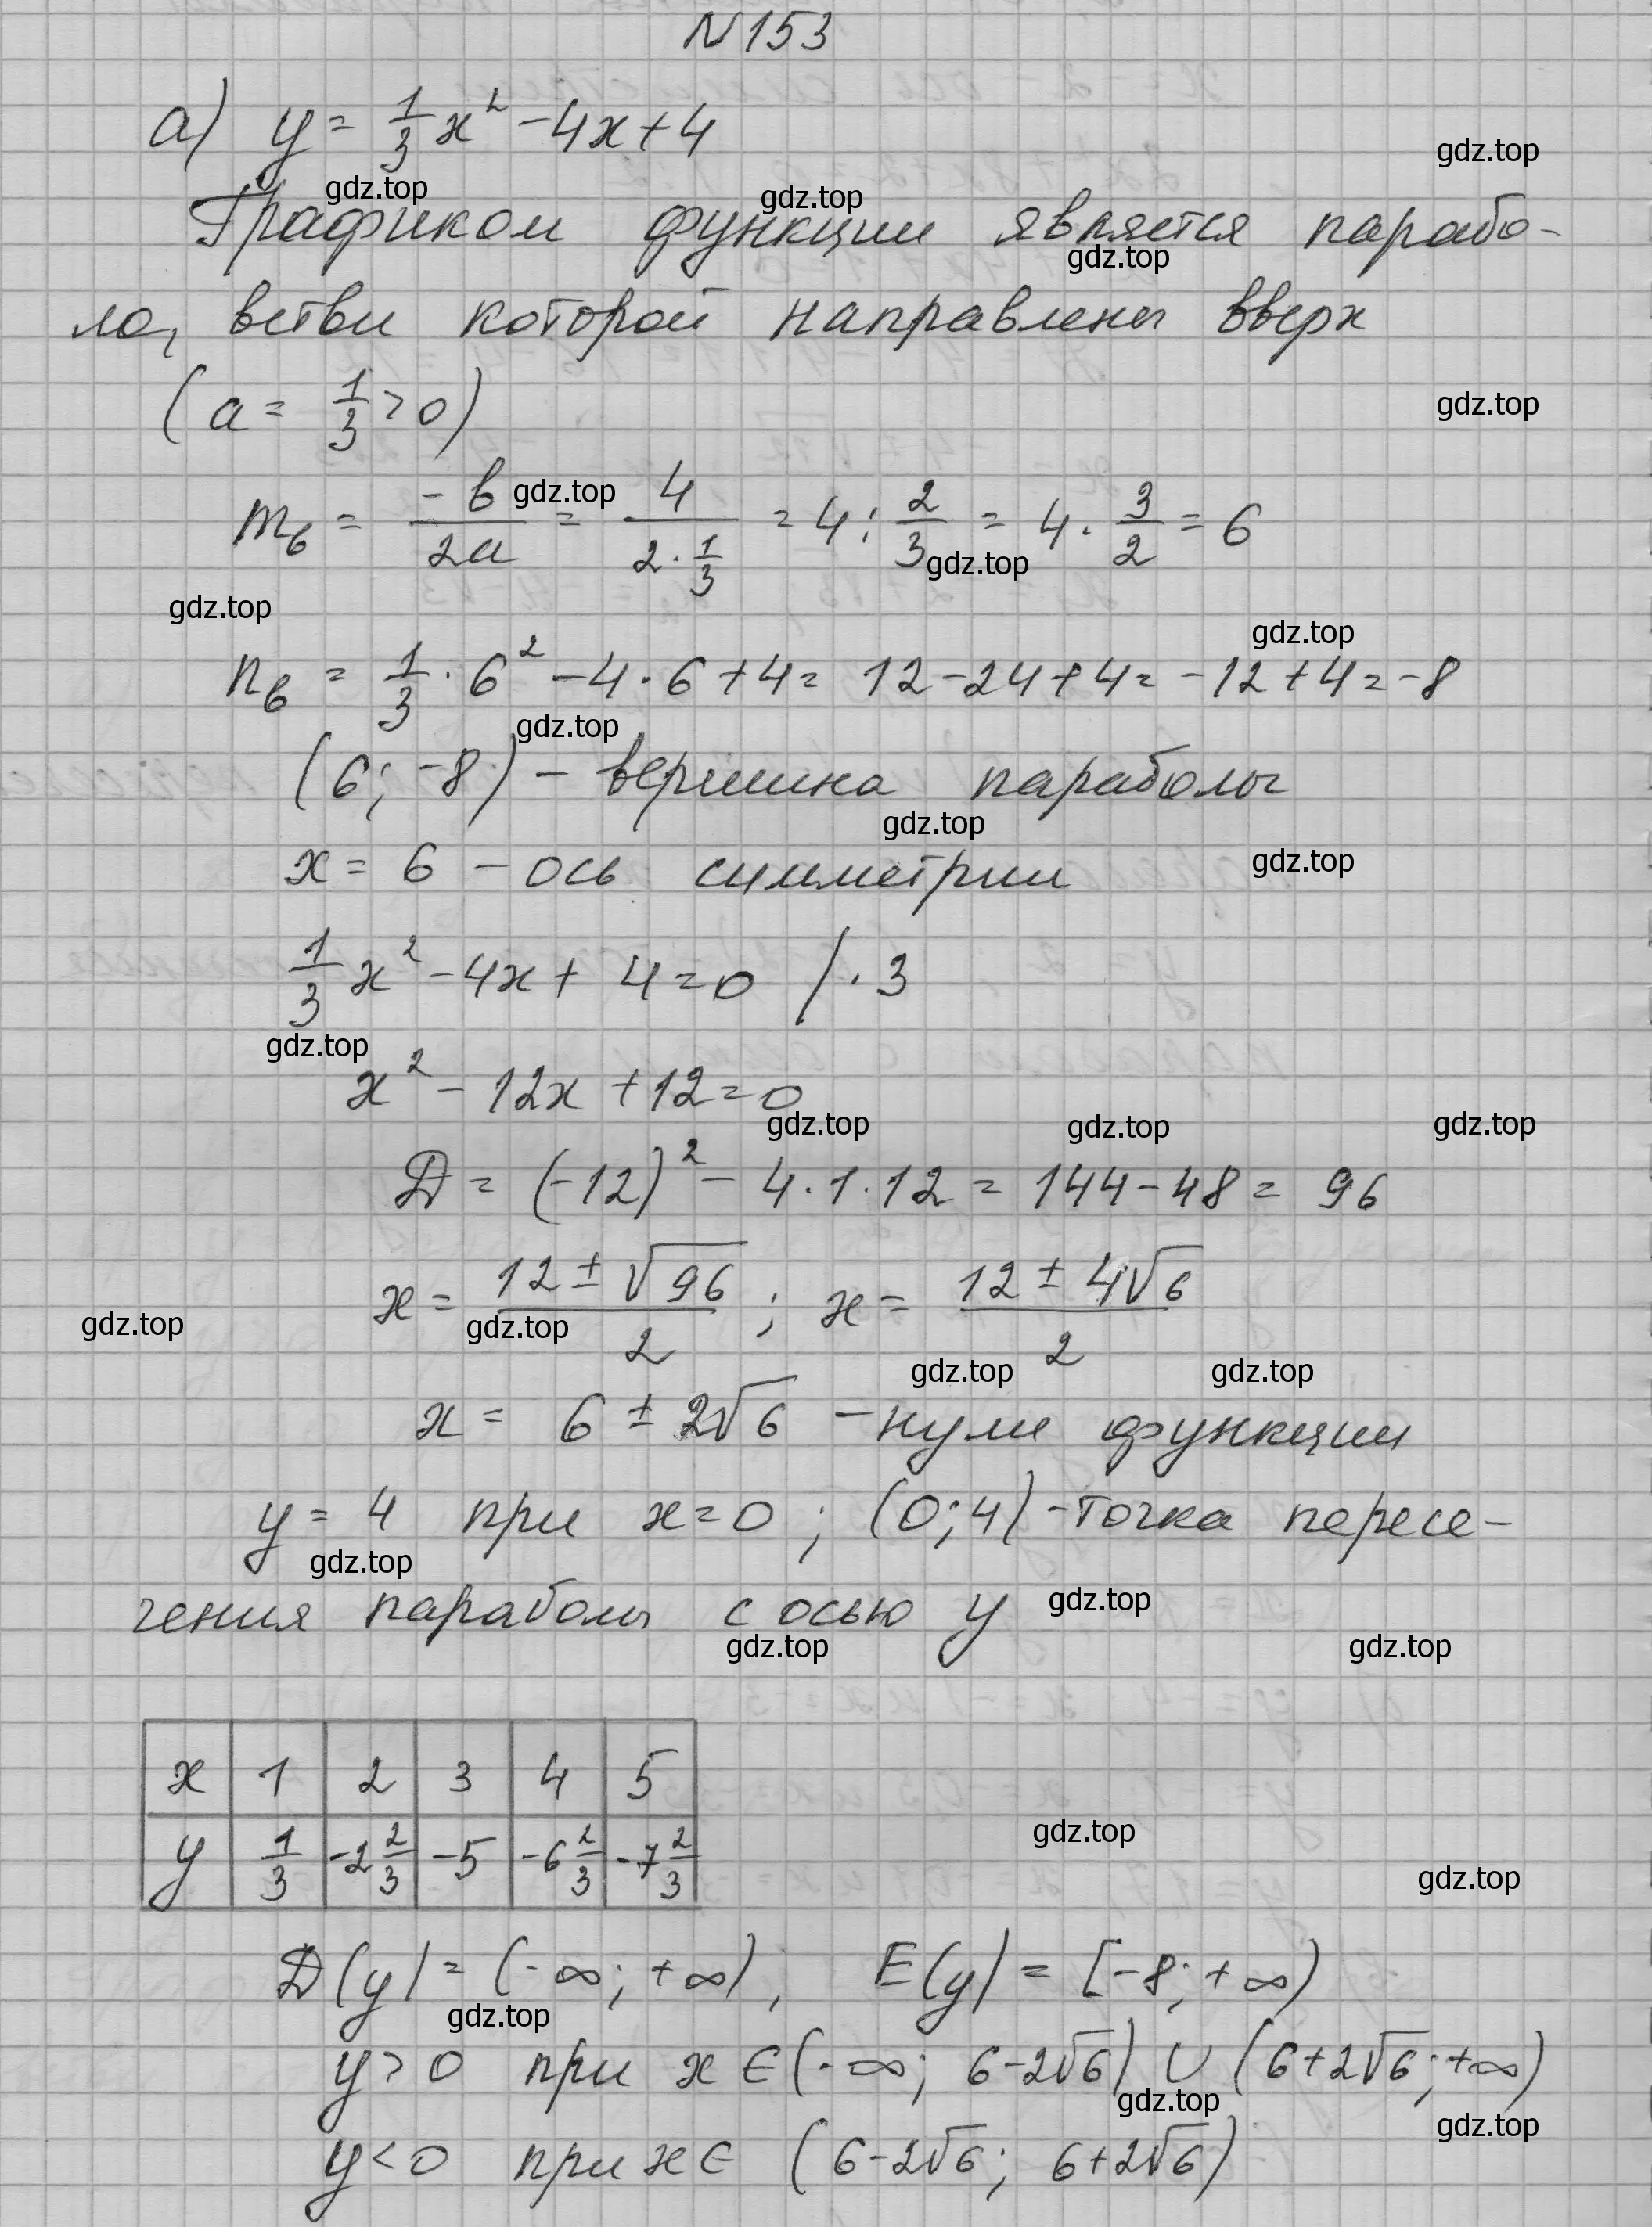 N153
а) y = 1/3 x² - 4x + 4
Графиком функции является парабо-
ла, ветви которой направлены вверх
(a = 1/3 > 0)
m_в = -b/2a = 4/(2·1/3) = 4 : 2/3 = 4 · 3/2 = 6
n_в = 1/3 · 6² - 4 · 6 + 4 = 12 - 24 + 4 = -12 + 4 = -8
(6; -8) - вершина параболы
x = 6 - ось симметрии
1/3 x² - 4x + 4 = 0 / · 3
x² - 12x + 12 = 0
D = (-12)² - 4 · 1 · 12 = 144 - 48 = 96
x = (12 ± √96)/2 ; x = (12 ± 4√6)/2
x = 6 ± 2√6 - нули функции
y = 4 при x = 0 ; (0; 4) - точка пересе-
чения параболы с осью y
x 1 2 3 4 5
y 1/3 -2 2/3 -5 -6 2/3 -7 2/3
D(y) = (-∞; +∞), E(y) = [-8; +∞)
y > 0 при x ∈ (-∞; 6-2√6) ∪ (6+2√6; +∞)
y < 0 при x ∈ (6-2√6; 6+2√6)
gdz.top